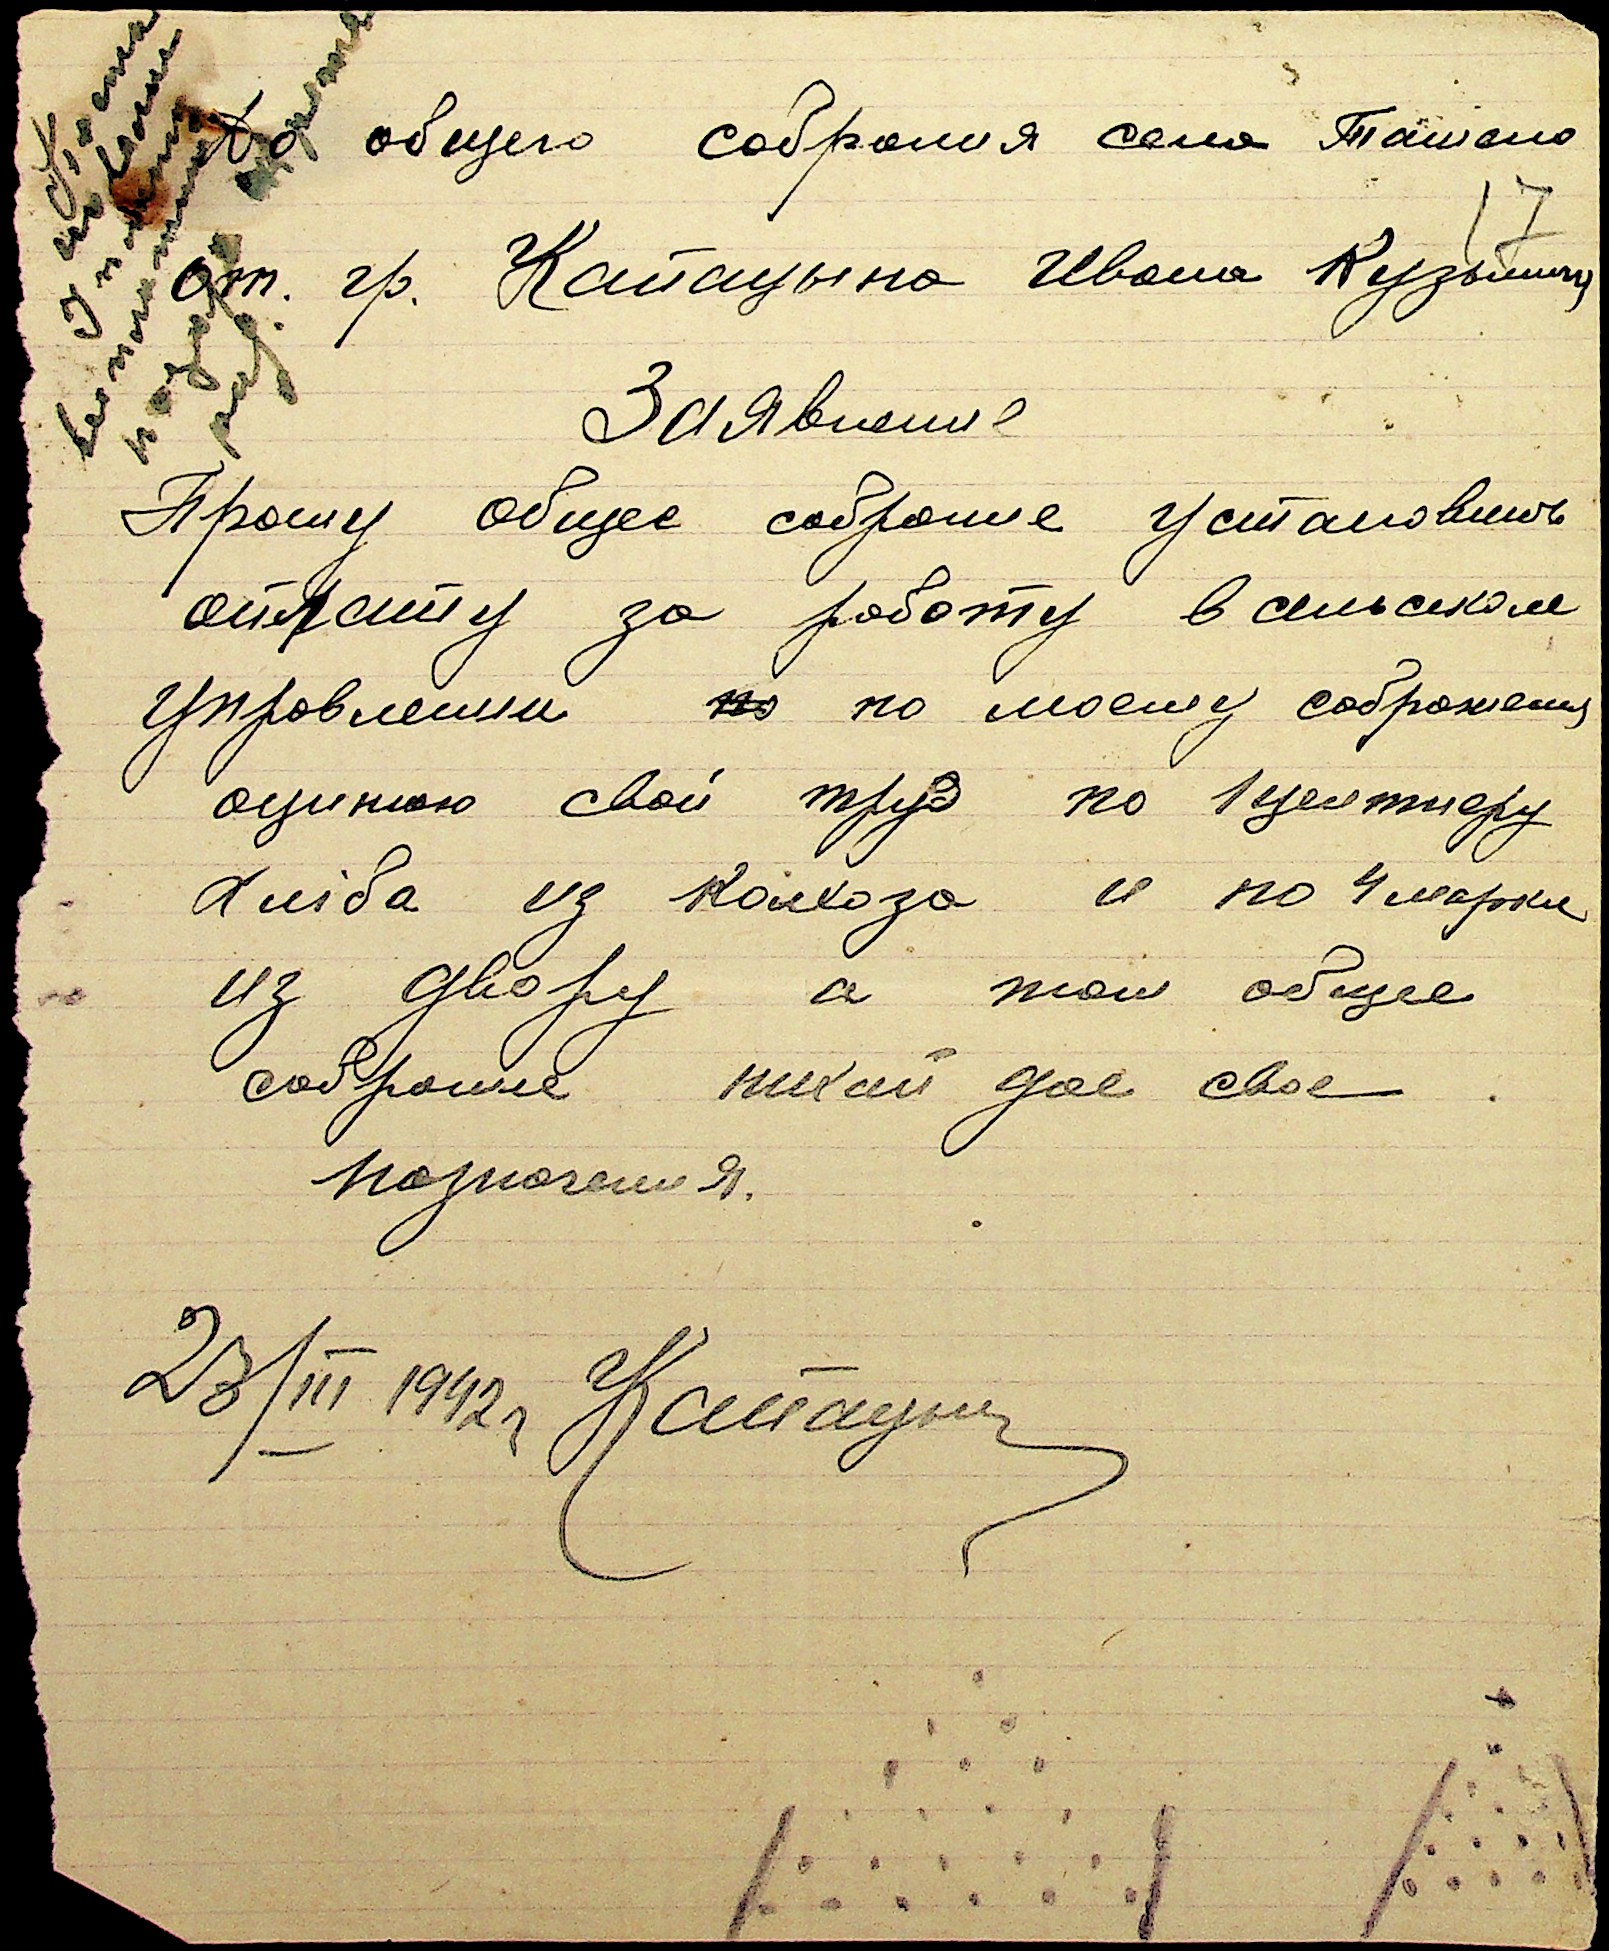 До общего собрания села Ташано
17
от. гр. Капацына Ивана Кузьмича
Заявление
Прошу общее собрание установить
оплату за работу в сельском
управлении по моему соброжения
оциняю свой труд по 1 центнеру
хліба из колхоза и по 4 марки
из двору а там общее
собрание нихай дае свое
назначения.
23/III 1942 г Капацын